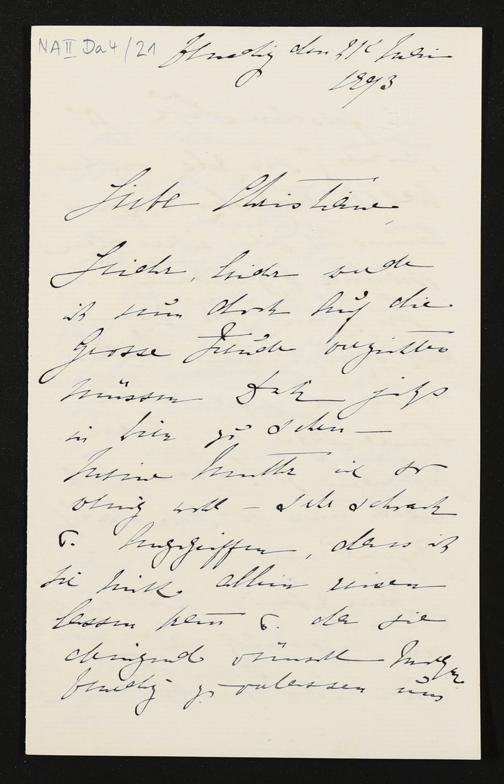 NA II Da 4 / 21
Venedig den 21t Juni
1893
Liebe Christiane,
Leider, leider werde
ich nun doch auf die
Grosse Freude verzichten
müssen Sie jetzt
in zu sehen —
Meine Mutter ist so
wenig wohl — sehr schwach
u. angegriffen, dass ich
sie nicht allein reisen
lassen kann u. da sie
dringend wünscht Morgen
Venedig zu verlassen um